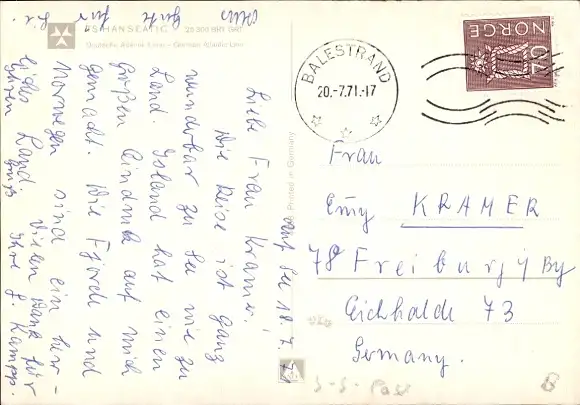 TS HANSEATIC 25 300 BRT (Br)
Deutsche Atlantik Linie · German Atlantic Line
Printed in Germany
auf See 18.7.71
Liebe Frau Kramer!
Die Reise ist ganz
wunderbar zu See wie zu
Land. Island hat einen
großen Eindruck auf mich
gemacht. Die Fjorde und
Norwegen sind ein herr-
liches Land. Vielen Dank für
Ihren Ihre J. Kampp.
für
NORGE
70
BALESTRAND
20.-7.71.-17
Frau
Emy KRAMER
78 Freiburg i By
Eichhalde 73
Germany.
S-S-Post